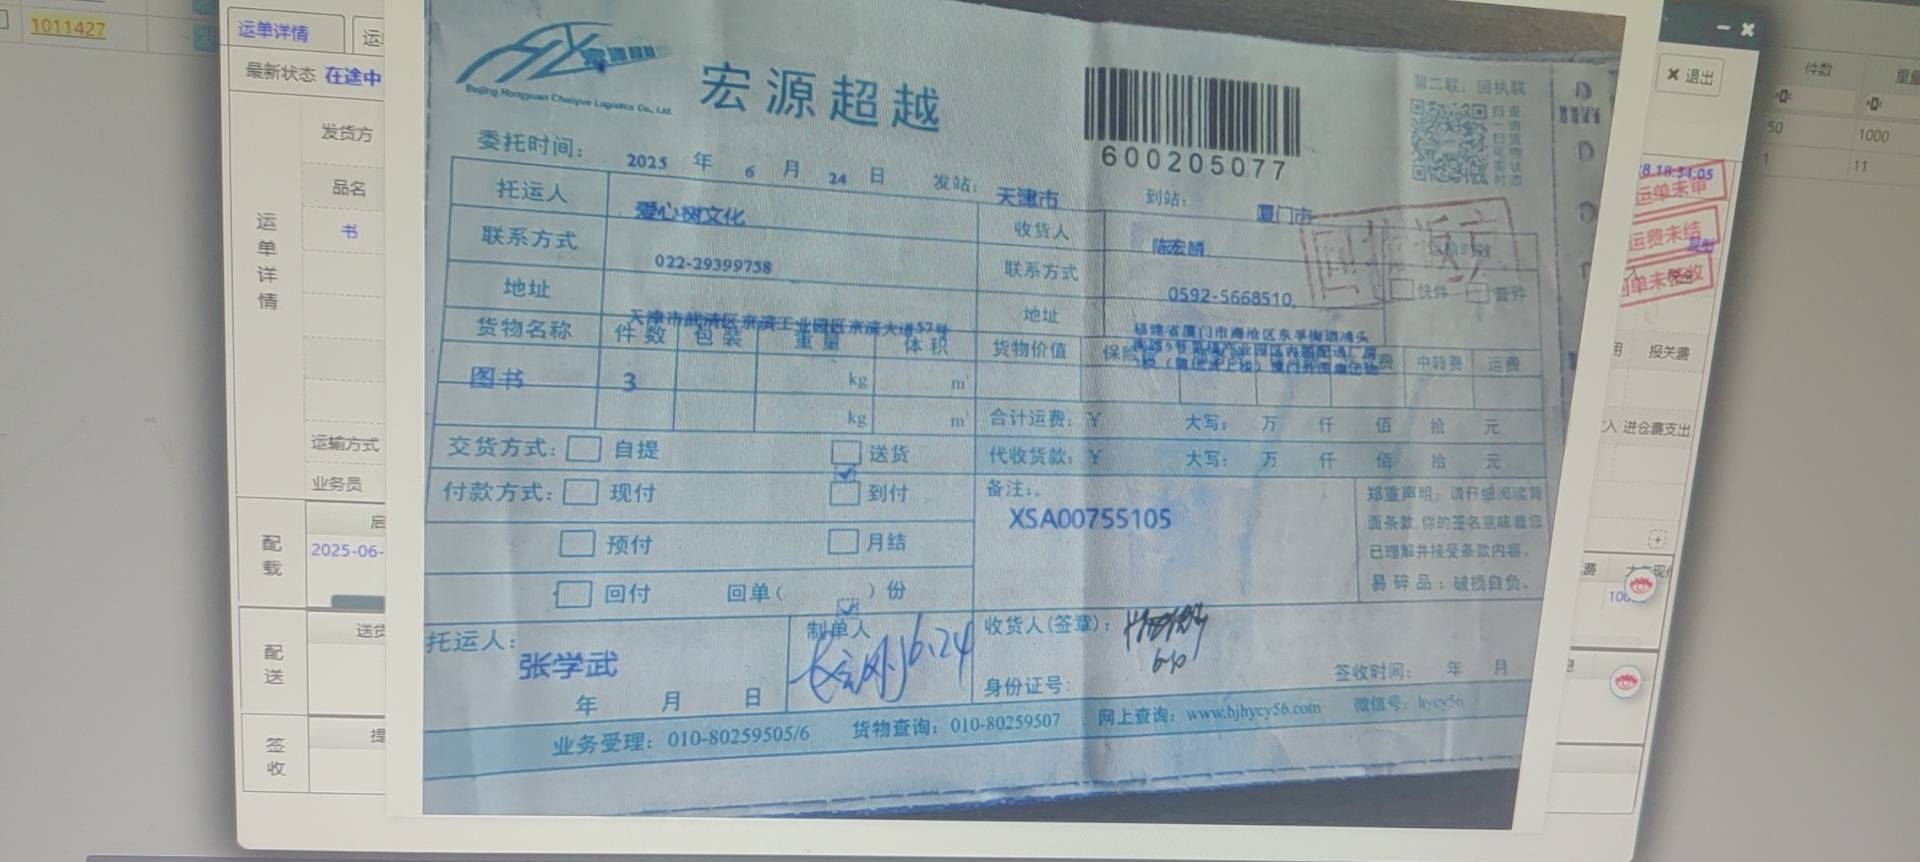 1011427
运单详情
最新状态 在途中
发货方
品名
书
运单详情
运输方式
业务员
配载
2025-06-
配送
签收
宏源超越
Beijing Hongyuan Chaoyue Logistics Co., Ltd.
宏源超越
600205077
第二联：回执联
委托时间： 2025 年 6 月 24 日 发站： 天津市 到站： 厦门市
托运人 爱心树文化 收货人 陈宏麟
联系方式 022-29399758 联系方式 0592-5668510,
快件 普件
地址 天津市武清区京滨工业园区京滨大道57号 地址
福建省厦门市海沧区东孚街道浦头
货物名称 件数 包装 重量 体积 货物价值 中转费 运费
图书 3 kg m³
kg m³ 合计运费：￥ 大写： 万 仟 佰 拾 元
交货方式： 自提 送货 代收货款：￥ 大写： 万 仟 佰 拾 元
付款方式： 现付 到付 备注：
XSA00755105
预付 月结
回付 回单( )份
郑重声明：请仔细阅读背
面条款,你的签名意味着您
已理解并接受条款内容。
易碎品：破损自负。
托运人：
张学武
年 月 日
制单人
6.24
收货人(签章)：
身份证号：
签收时间： 年 月
业务受理：010-80259505/6 货物查询：010-80259507 网上查询：www.bjhycy56.com 微信号：hycy56
退出
件数
50 1000
1 11
18:54:05
运单未审
运费未结
报关费
进仓费支出